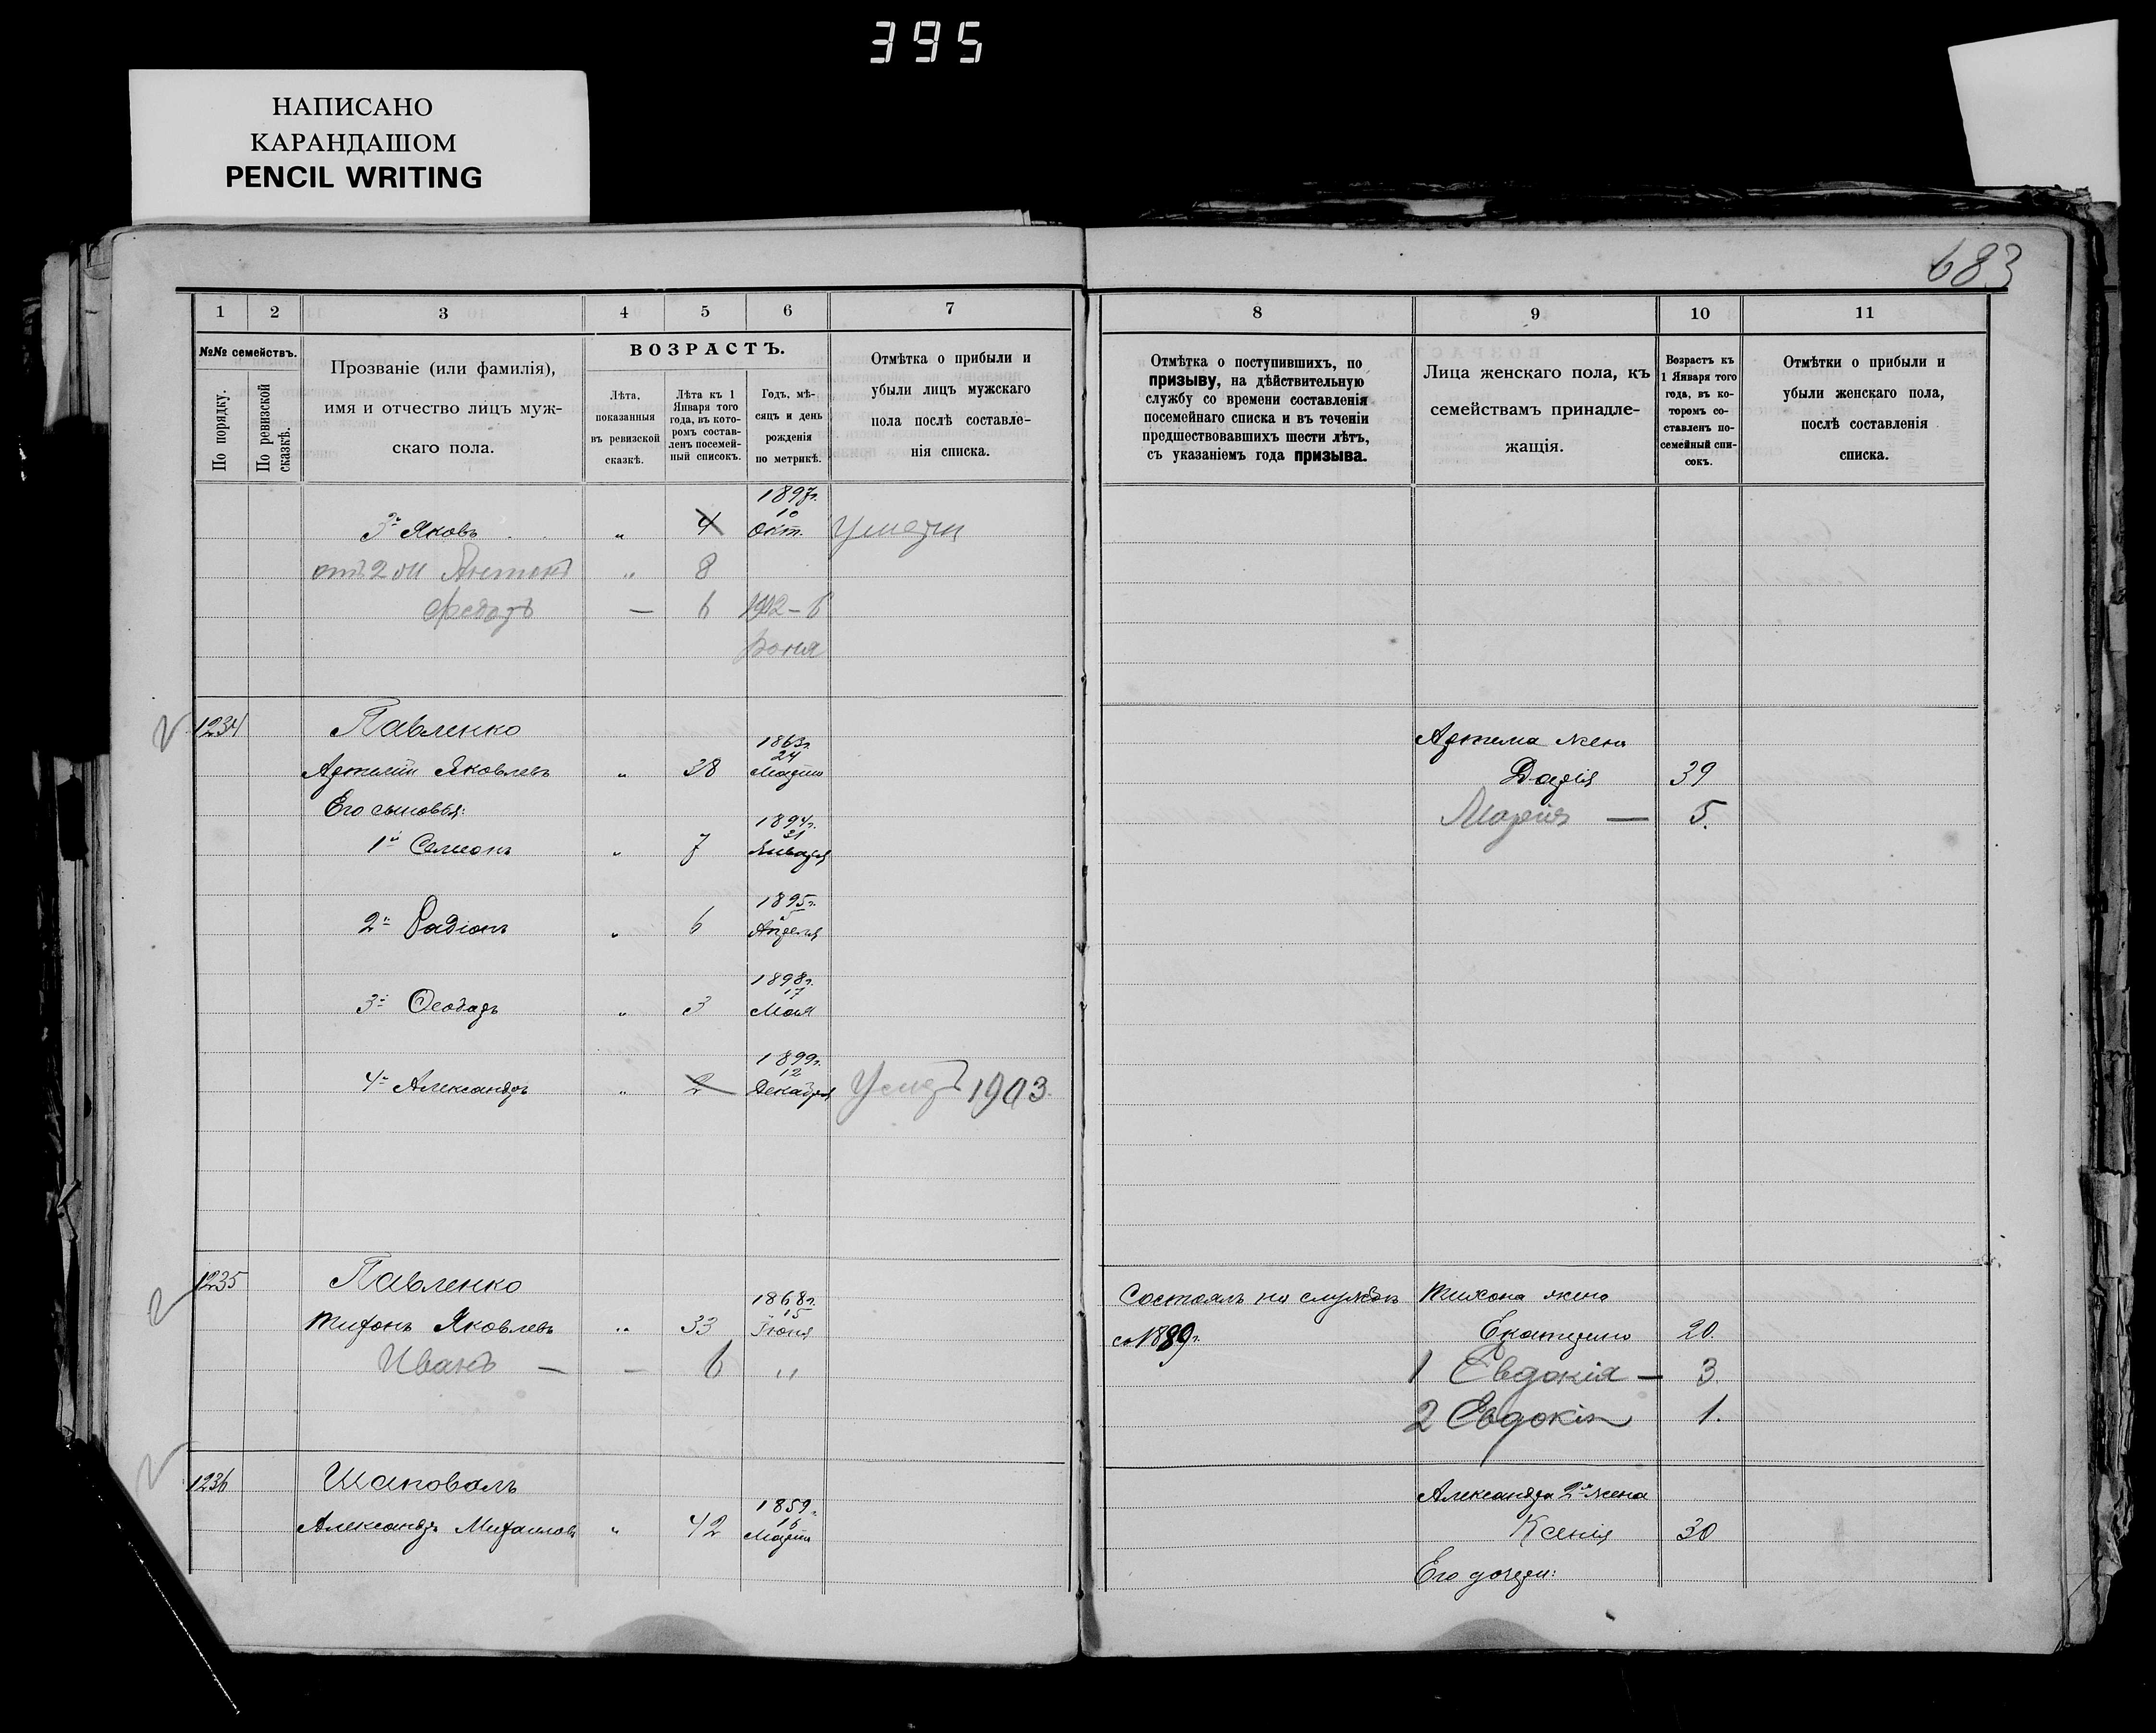 395
НАПИСАНО
КАРАНДАШОМ
PENCIL WRITING
683
1 2 3 4 5 6 7
№№ семействъ.
По порядку.
По ревизской сказкѣ.
Прозваніе (или фамилія),
имя и отчество лицъ муж-
скаго пола.
ВОЗРАСТЪ.
Лѣта,
показанныя
въ ревизской
сказкѣ.
Лѣта къ 1
Января того
года, въ кото-
ромъ состав-
ленъ посемей-
ный списокъ.
Годъ, мѣ-
сяцъ и день
рожденія
по метрикѣ.
Отмѣтка о прибыли и
убыли лицъ мужскаго
пола послѣ составле-
нія списка.
1897г.
10
3й Яковъ „ 4 Окт.
отъ 2й „ 8
Федотъ — 6 1912–6
1234 Павленко
1863г.
24
Артемій Яковлевъ „ 38 Марта
Его сыновья:
1894г.
21
1й Семенъ „ 7 Января
1895г.
2й Радіонъ „ 6 Апрѣля
1898г.
17
3й „ 3 Мая
1899г.
12
4й Александръ „ 2 Декабря Умеръ 1903.
1235 Павленко
1868г.
15
Тихонъ Яковлевъ „ 33 Іюня
Иванъ — — 6 „
1236 Шаповалъ
1859г.
16
Александръ Михаиловъ „ 42 Марта
8 9 10 11
Отмѣтка о поступившихъ, по
призыву, на дѣйствительную
службу со времени составленія
посемейнаго списка и въ теченіи
предшествовавшихъ шести лѣтъ,
съ указаніемъ года призыва.
Лица женскаго пола, къ
семействамъ принадле-
жащія.
Возрастъ къ
1 Января того
года, въ ко-
торомъ со-
ставленъ по-
семейный спи-
сокъ.
Отмѣтки о прибыли и
убыли женскаго пола,
послѣ составленія
списка.
Артема жена
Дарія 39
Марія — 5.
Состоялъ на службѣ Тихона жена
съ 1889г. Екатерина 20.
1 Евдокія — 3
2 Евдокія 1.
Александра 2я жена
Ксенія 30
Его дочери: